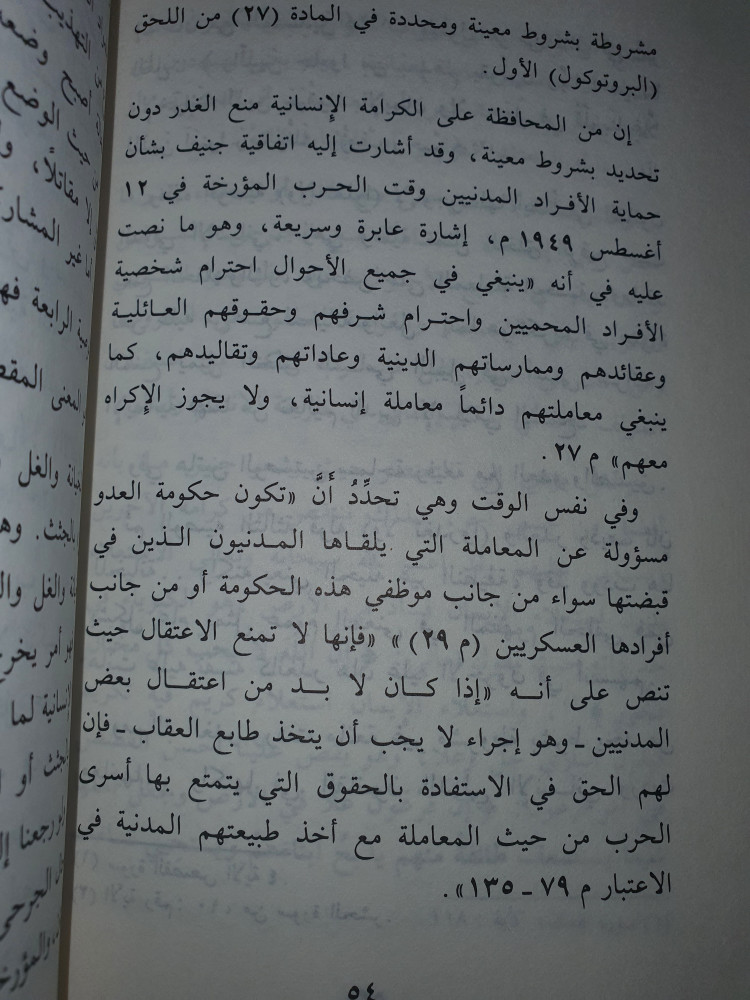 مشروطة بشروط معينة ومحددة في المادة (٢٧) من اللحق
(البروتوكول) الأول.
إن من المحافظة على الكرامة الإِنسانية منع الغدر دون
تحديد بشروط معينة، وقد أشارت إليه اتفاقية جنيف بشأن
حماية الأفراد المدنيين وقت الحرب المؤرخة في ١٢
أغسطس ١٩٤٩ م، إشارة عابرة وسريعة، وهو ما نصت
عليه في أنه «ينبغي في جميع الأحوال احترام شخصية
الأفراد المحميين واحترام شرفهم وحقوقهم العائلية
وعقائدهم وممارساتهم الدينية وعاداتهم وتقاليدهم، كما
ينبغي معاملتهم دائماً معاملة إنسانية، ولا يجوز الإِكراه
معهم» م ٢٧.
وفي نفس الوقت وهي تحدِّدُ أَنَّ «تكون حكومة العدو
مسؤولة عن المعاملة التي يلقاها المدنيون الذين في
قبضتها سواء من جانب موظفي هذه الحكومة أو من جانب
أفرادها العسكريين (م ٢٩)» «فإنها لا تمنع الاعتقال حيث
تنص على أنه «إذا كان لا بد من اعتقال بعض
المدنيين ـ وهو إجراء لا يجب أن يتخذ طابع العقاب ـ فإن
لهم الحق في الاستفادة بالحقوق التي يتمتع بها أسرى
الحرب من حيث المعاملة مع أخذ طبيعتهم المدنية في
الاعتبار م ٧٩ ـ ١٣٥».
٥٤